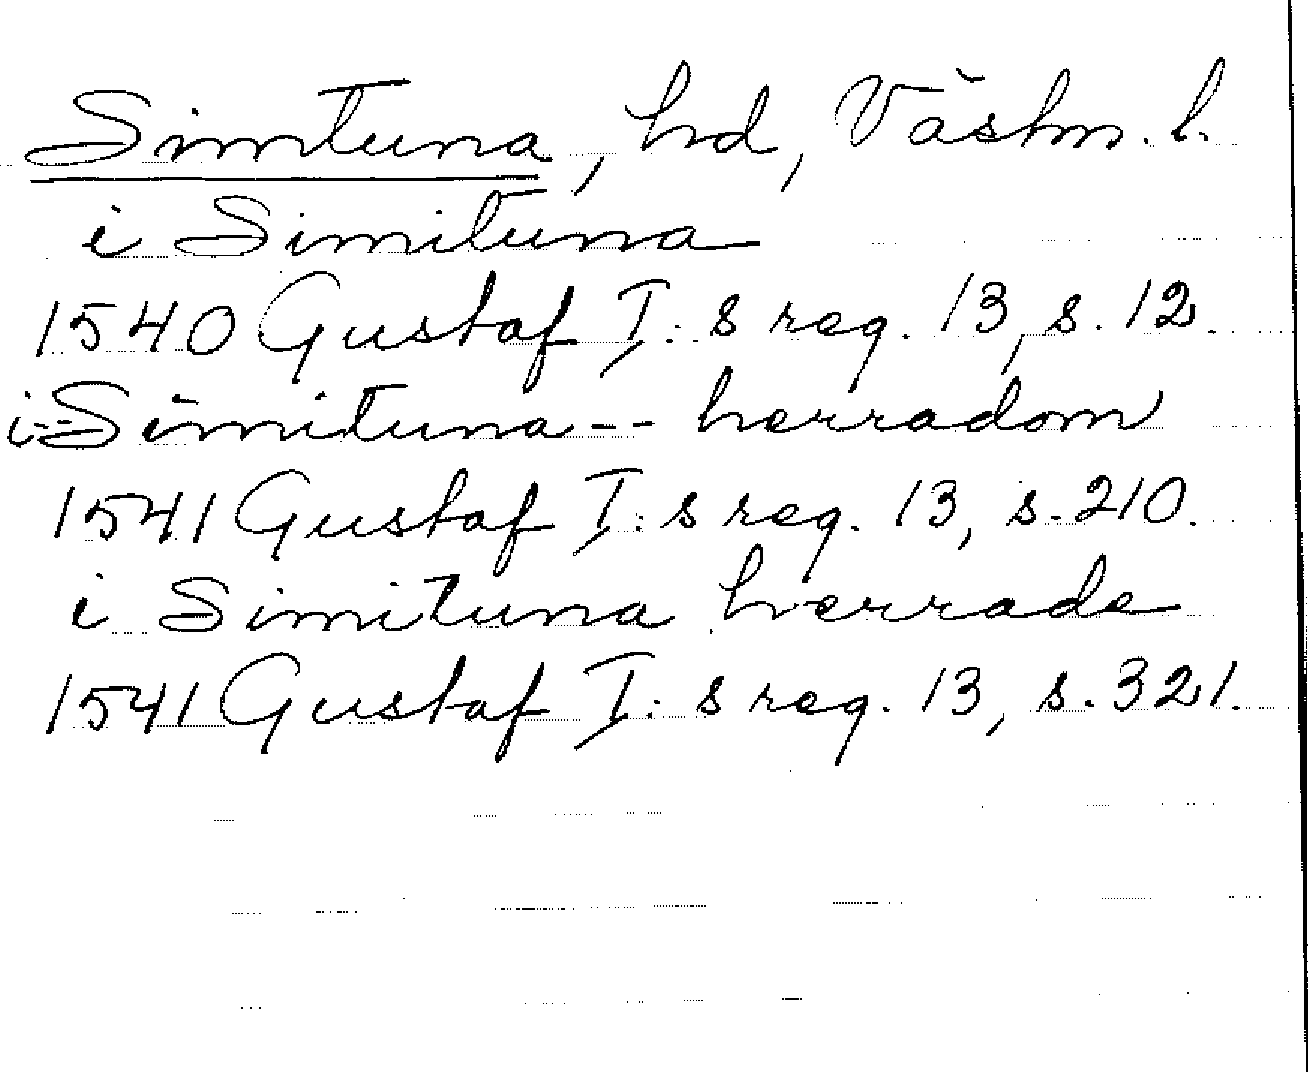 Simtuna, hd, Västm. l.
i Simituna
1540 Gustaf I: s reg. 13, s. 12.
i--Simituna-- herradom
1541 Gustaf I: s reg. 13, s. 210.
i Simituna herrade
1541 Gustaf I: s reg. 13, s. 321.